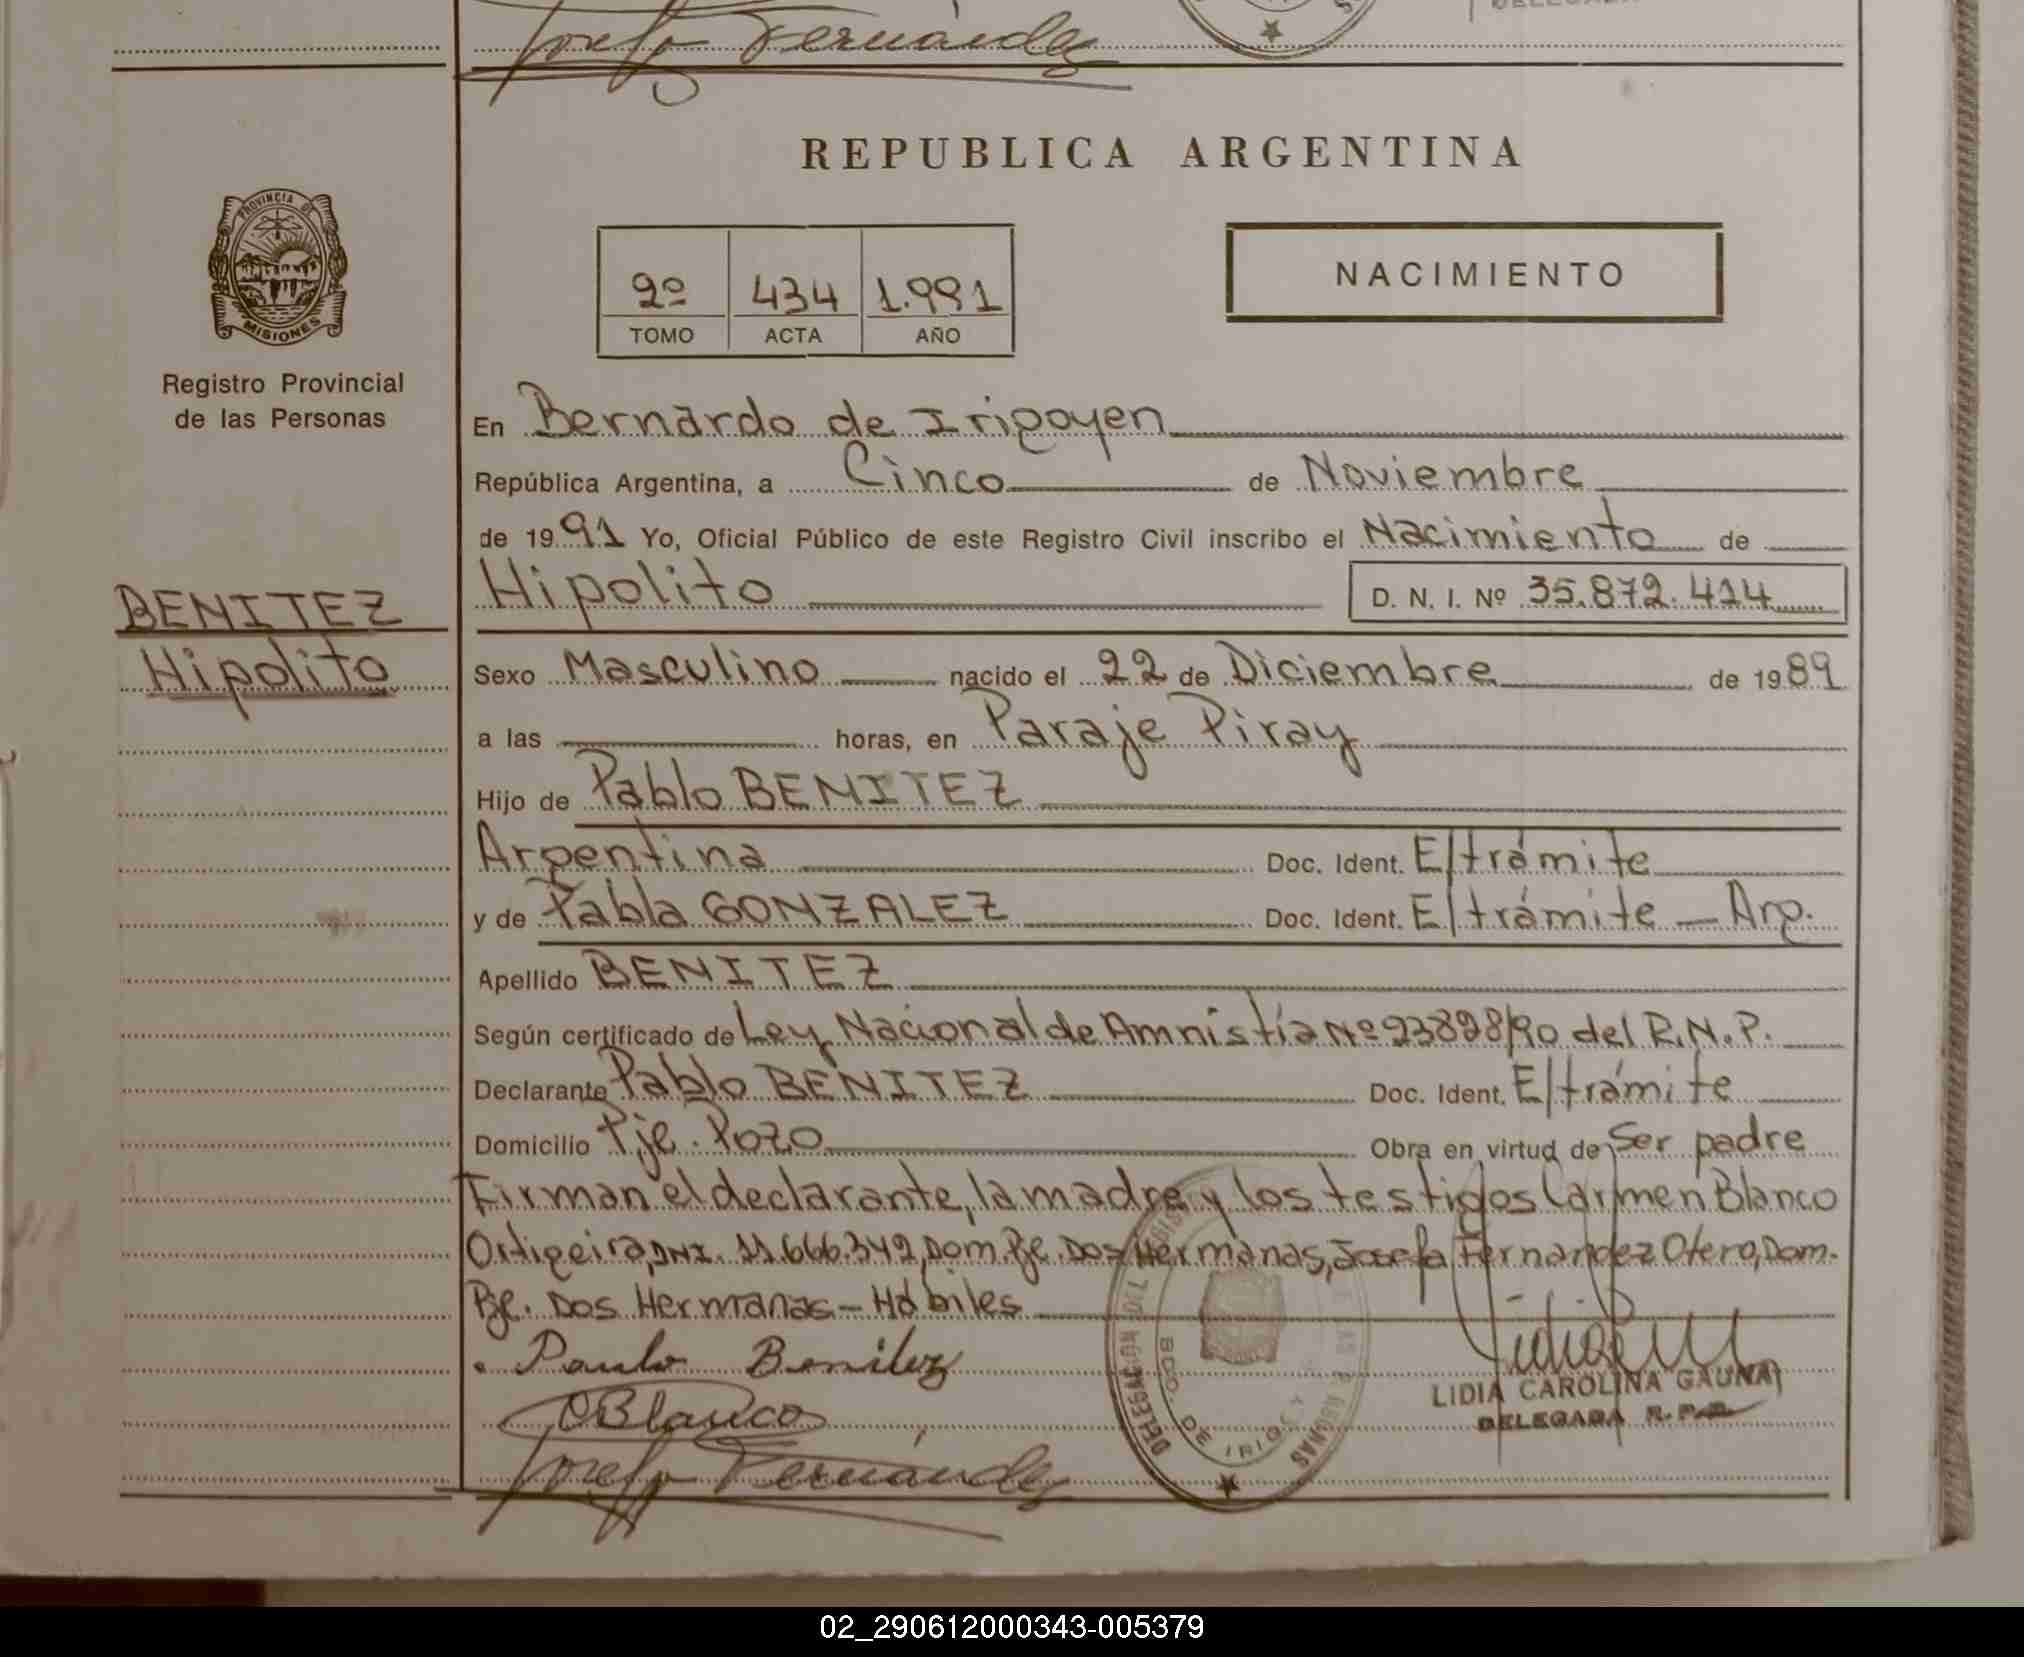 Josefa Fernández
REPUBLICA ARGENTINA
PROVINCIA DE
MISIONES
Registro Provincial
de las Personas
2º 434 1.991
TOMO ACTA AÑO
NACIMIENTO
En Bernardo de Irigoyen
República Argentina, a Cinco de Noviembre
de 1991 Yo, Oficial Público de este Registro Civil inscribo el Nacimiento de
BENITEZ
Hipolito
Hipolito D. N. I. Nº 35.872.414
Sexo Masculino nacido el 22 de Diciembre de 1989
a las horas, en Paraje Piray
Hijo de Pablo BENITEZ
Argentina Doc. Ident. E/trámite
y de Pabla GONZALEZ Doc. Ident. E/trámite - Arg.
Apellido BENITEZ
Según certificado de Ley Nacional de Amnistía Nº 23828/90 del R.N.P.
Declarante Pablo BENITEZ Doc. Ident. E/trámite
Domicilio Pje. Pozo Obra en virtud de Ser padre
Firman el declarante, la madre y los testigos Carmen Blanco
Ortigeira, DNI. 11.666.342, Dom. Pje. Dos Hermanas, Josefa Fernandez Otero, Dom.
Pje. Dos Hermanas - Hábiles
Paulo Benitez
CBlanco
Josefa Fernández
LIDIA CAROLINA GAUNA
DELEGADA R.P.P.
DELEGACION DEL
BDO. DE IRIGOY
02_290612000343-005379